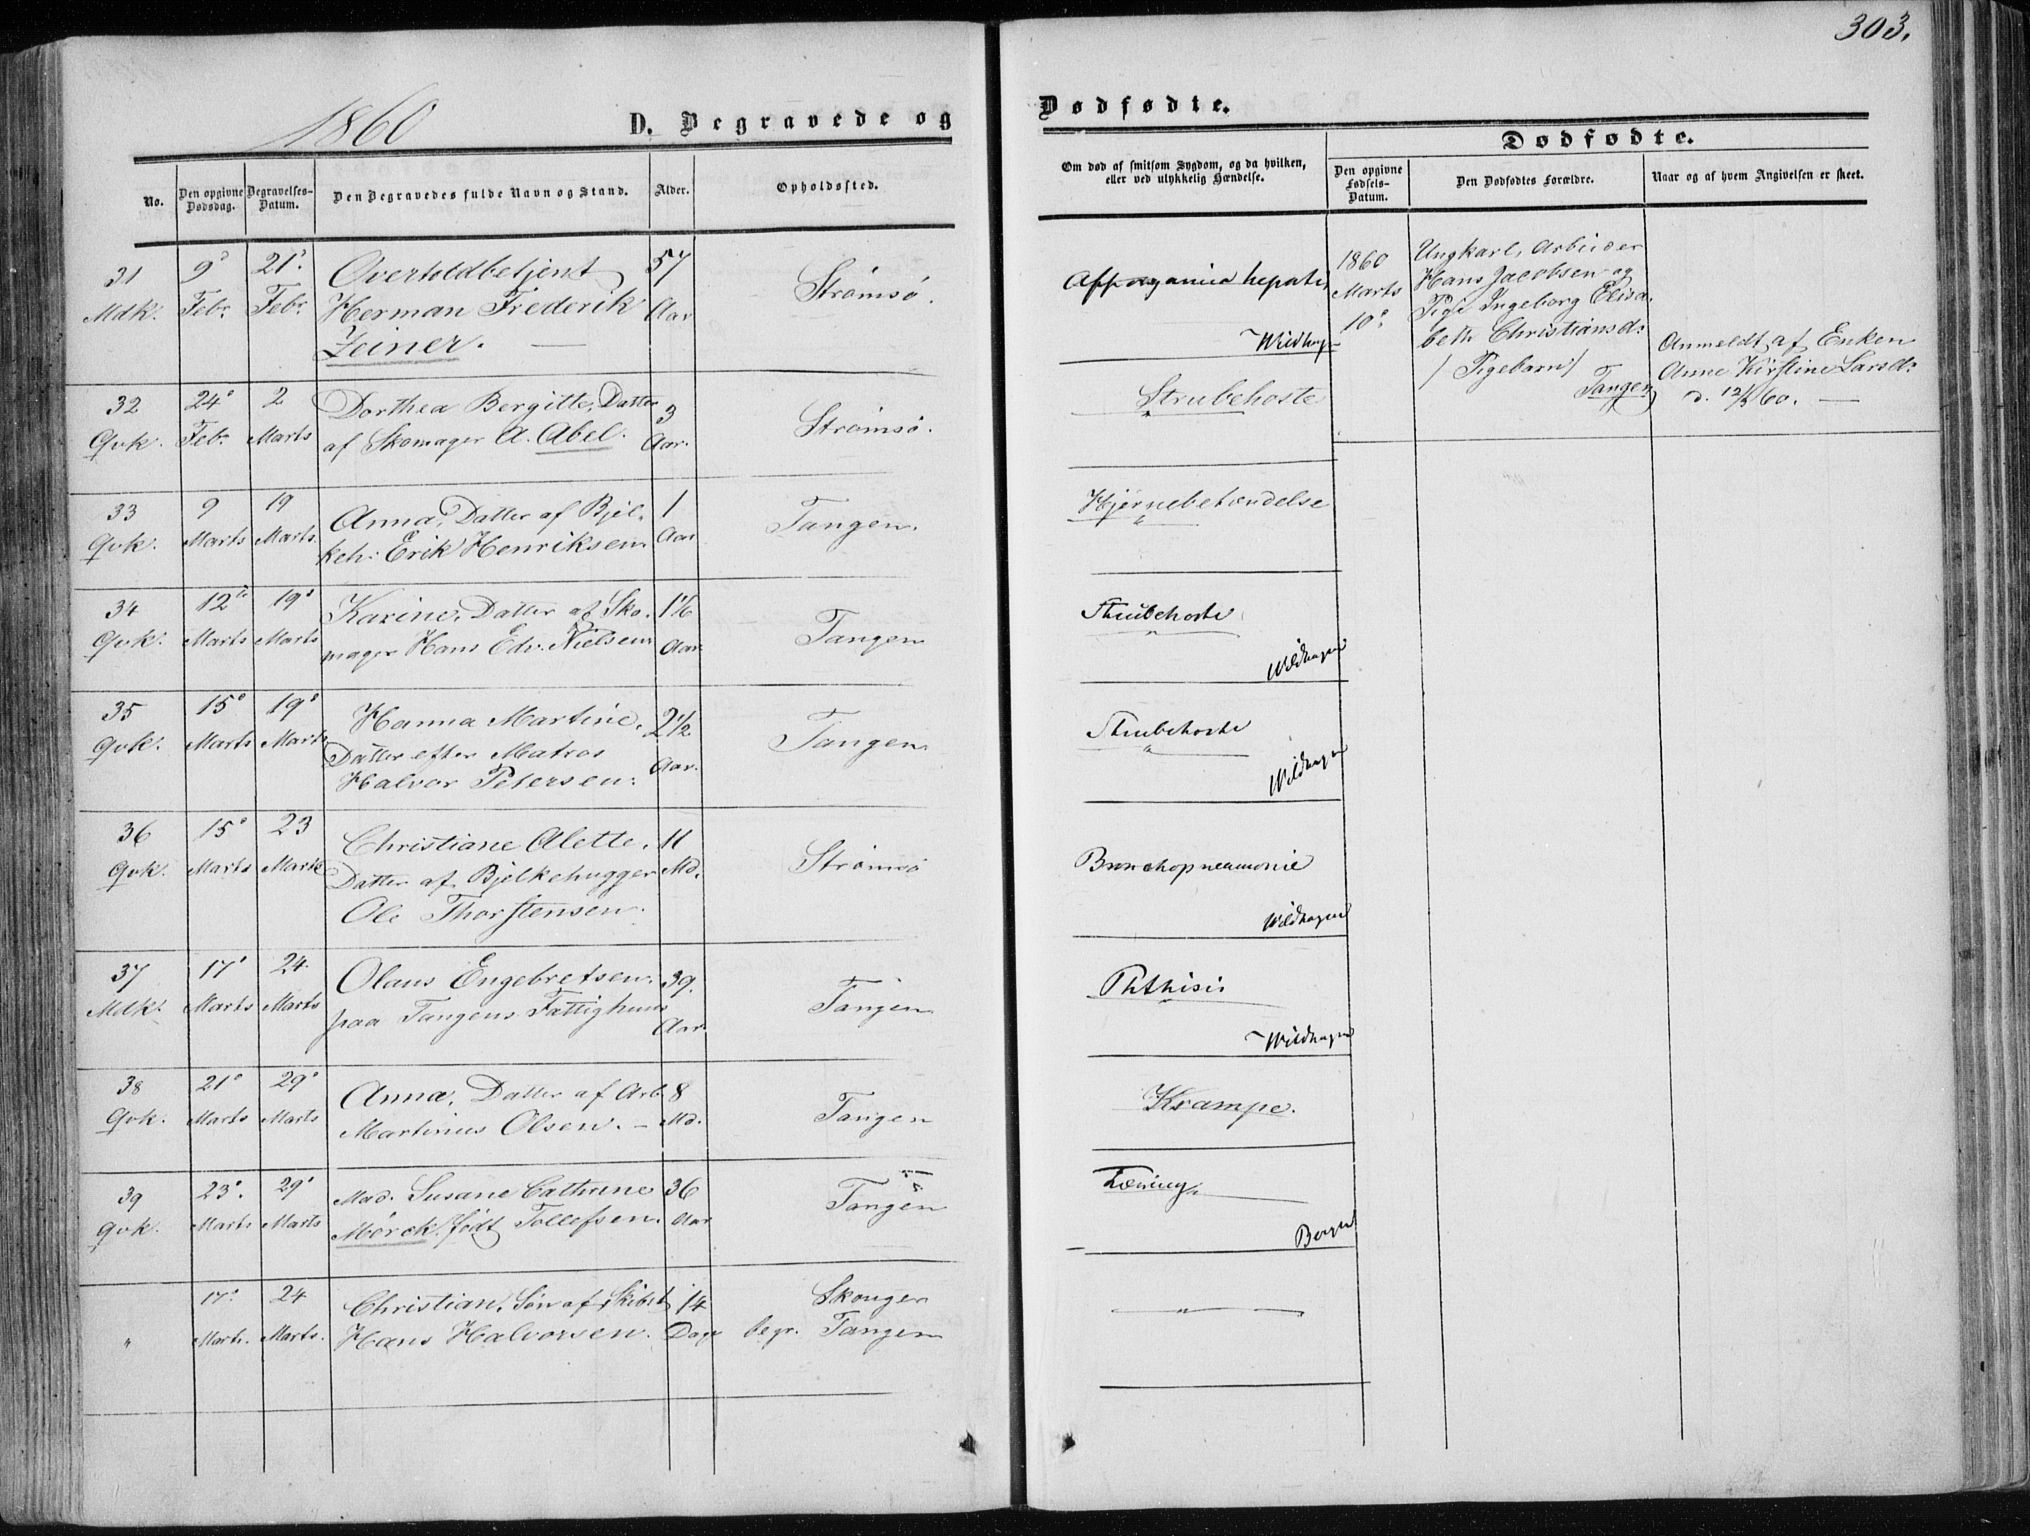 303.
1860
D. Begravede og
Dødfødte.
No.
Den opgivne Dødsdag.
Begravelses-Datum.
Den Begravedes fulde Navn og Stand.
Alder.
Opholdssted.
Om død af smitsom Sygdom, og da hvilken,
eller ved ulykkelig Hændelse.
Dødfødte.
Den opgivne Fødsels-Datum.
Den Dødfødtes Forældre.
Naar og af hvem Angivelsen er skeet.
31 9d 21d. Overtoldbetjent 57 Strømsø.
Mdk. Febr. Febr. Herman Frederik Aar
Zeiner. —
Aff. organica hepatis
Wildhagen
32 24d 2 Dorthea Bergitte, Datter 3 Strømsø.
Qvk. Febr. Marts af Skomager A. Abel. Aar.
Strubehoste
33 9 19 Anna, Datter af Bjel- 1 Tangen.
Qvk. Marts Marts keh. Erik Henriksen Aar
Hjernebetændelse
34 12te 19d Karine, Datter af Sko- 1 1/6 Tangen
Qvk. Marts Marts mager Hans Edv. Nielsen Aar
Strubehoste
Wildhagen
35 15d 19d Hanna Martine, 2 1/2 Tangen
Qvk. Marts Marts Datter efter Matros Aar.
Halvor Petersen.
Strubehoste
Wildhagen
36 15d 23 Christiane Alette, 11 Strømsø
Qvk. Marts Marts Datter af Bjelkehugger Md.
Ole Thorstensen.
Bronchopneumonie
Wildhagen
37 17d 24. Olaus Engebretsen. 39. Tangen
Mdk. Marts Marts paa Tangens Fattighuus Aar.
Phthisis
Wildhagen
38 21d 29d Anna, Datter af Arb. 8 Tangen
Qvk. Marts Marts Martinus Olsen. — Md.
Krampe.
39 23d. 29d Mad. Susane Cathrine 36 Tangen
Qvk. Marts Marts Mørck født Tollefsen. Aar
Tæring
Borgen
" 17d. 24 Christian, Søn af Skibst. 14 Skouger
Marts. Marts. Hans Halvorsen. Dage begr. Tangen
"
1860
Marts
10d.
Ungkarl, Arbeider
Hans Jacobsen og
Pige Ingeborg Elisa-
beth Christiansd.
/ Pigebarn /
Tangen
Anmeldt af Enken
Anne Kirstine Larsd.
d. 12/3 60. —